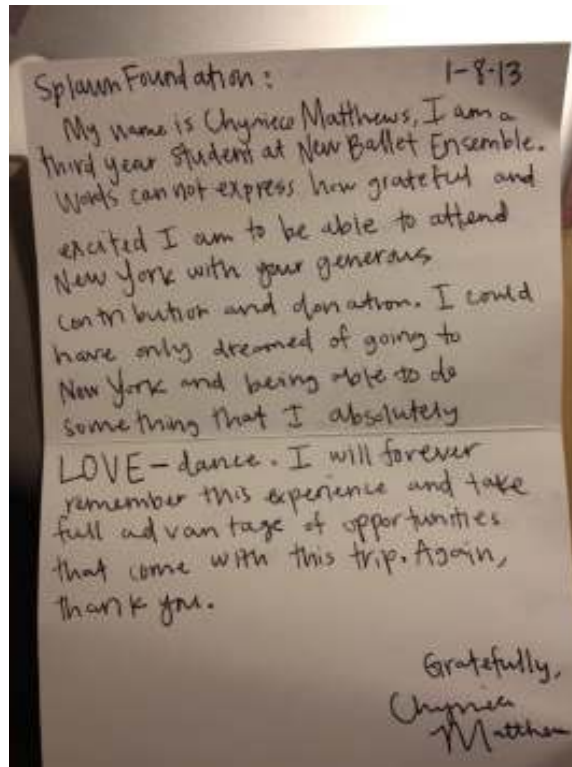 Splawn Foundation: 1-8-13
My name is Chyniece Matthews, I am a
third year student at New Ballet Ensemble.
Words can not express how grateful and
excited I am to be able to attend
New York with your generous
contribution and donation. I could
have only dreamed of going to
New York and being able to do
something that I absolutely
LOVE - dance. I will forever
remember this experience and take
full advantage of opportunities
that come with this trip. Again,
thank you.
Gratefully,
Matthew